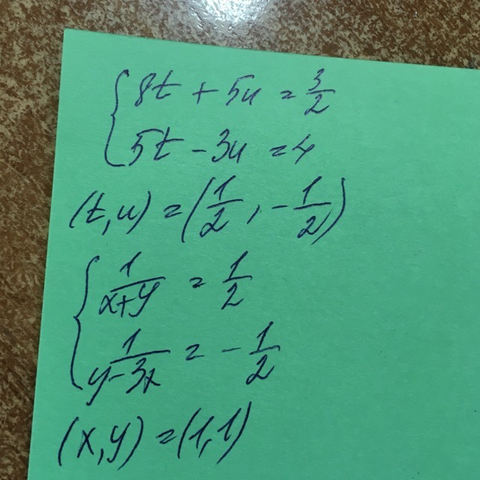 {8t + 5u = 3/2
5t - 3u = 4
(t,u) = (1/2, -1/2)
{1/(x+y) = 1/2
1/(y-3x) = -1/2
(x,y) = (1,1)